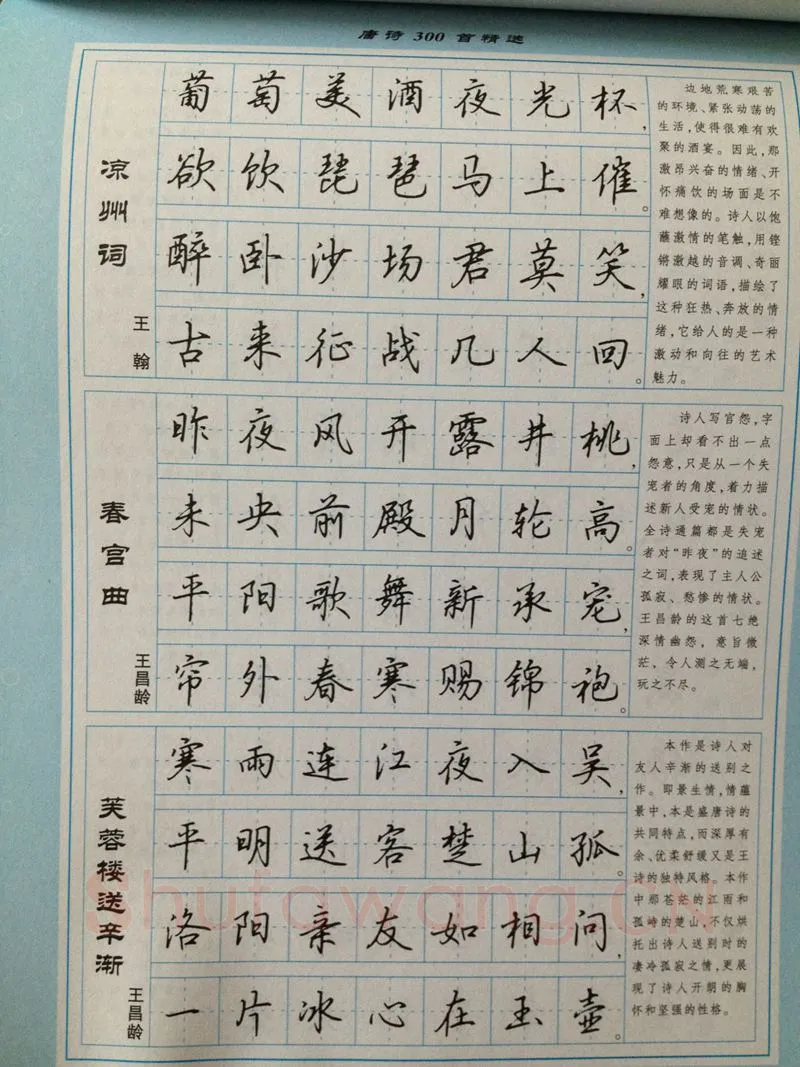 唐诗300首精选
凉州词
王翰
葡萄美酒夜光杯，
欲饮琵琶马上催。
醉卧沙场君莫笑，
古来征战几人回。
边地荒寒艰苦
的环境、紧张动荡的
生活，使得很难有欢
聚的酒宴。因此，那
激昂兴奋的情绪、开
怀痛饮的场面是不
难想像的。诗人以饱
蘸激情的笔触，用铿
锵激越的音调、奇丽
耀眼的词语，描绘了
这种狂热、奔放的情
绪，它给人的是一种
激动和向往的艺术
魅力。
春宫曲
王昌龄
昨夜风开露井桃，
未央前殿月轮高。
平阳歌舞新承宠，
帘外春寒赐锦袍。
诗人写宫怨，字
面上却看不出一点
怨意，只是从一个失
宠者的角度，着力描
述新人受宠的情状。
全诗通篇都是失宠
者对“昨夜”的追述
之词，表现了主人公
孤寂、愁惨的情状。
王昌龄的这首七绝
深情幽怨，意旨微
茫，令人测之无端，
玩之不尽。
芙蓉楼送辛渐
王昌龄
寒雨连江夜入吴，
平明送客楚山孤。
洛阳亲友如相问，
一片冰心在玉壶。
本作是诗人对
友人辛渐的送别之
作。即景生情，情蕴
景中，本是盛唐诗的
共同特点，而深厚有
余、优柔舒缓又是王
诗的独特风格。本作
中那苍茫的江雨和
孤峙的楚山，不仅烘
托出诗人送别时的
凄冷孤寂之情，更展
现了诗人开朗的胸
怀和坚强的性格。